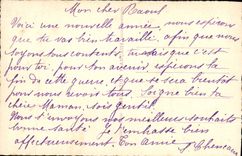 Mon cher Raoul
Voici une nouvelle année, nous espérons
que tu vas bien travailler, afin que nous
soyons tous contents, tu sais que c'est
pour toi, pour ton avenir, espérons la
fin de cette guerre, et que se sera bientôt
pour nous revoir tous. Soigne bien ta
chère Maman, sois gentil.
Nous t'envoyons nos meilleurs souhaits
bonne santé Je t'embrasse bien
affectueusement. Ton